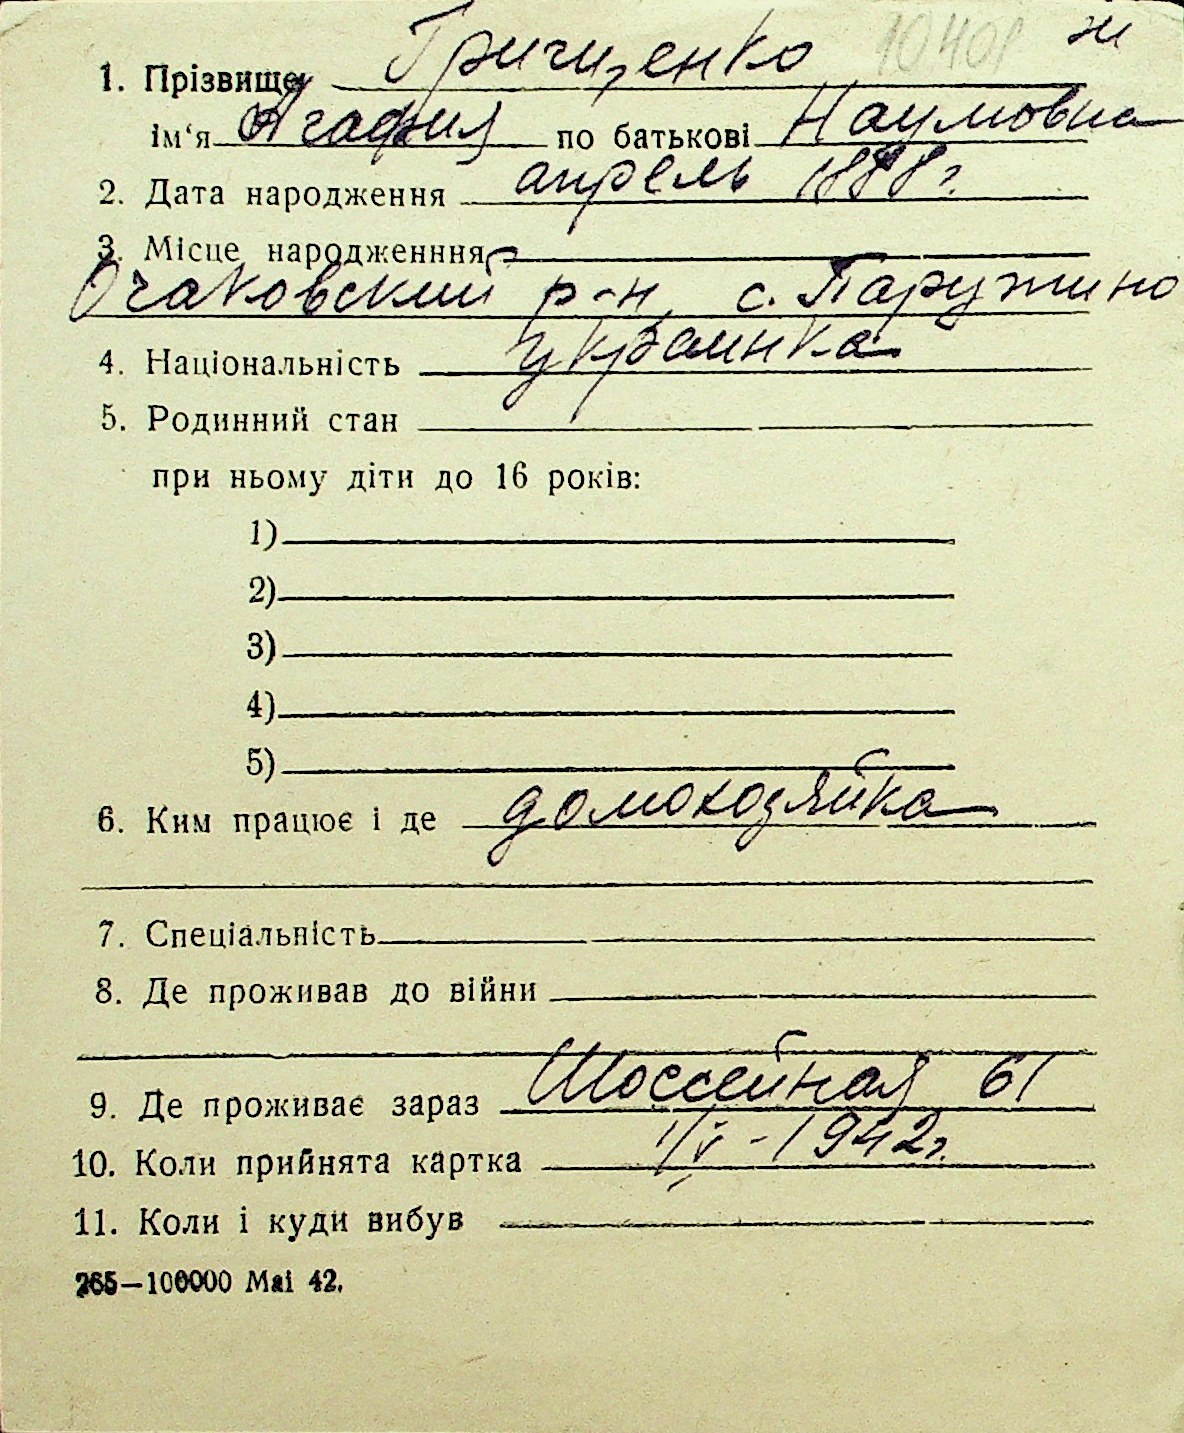 10401 ж
1. Прізвище Грищенко
ім‘я Агафия по батькові Наумовна
2. Дата народження апрель 1888 г.
3. Місце народженння
Очаковский р-н, с. Паружино
4. Національність украинка
5. Родинний стан
при ньому діти до 16 років:
1)
2)
3)
4)
5)
6. Ким працює і де домохозяйка
7. Спеціальність
8. Де проживав до війни
9. Де проживає зараз Шоссейная 61
10. Коли прийнята картка 1/V - 1942 г.
11. Коли і куди вибув
265—100000 Mai 42.